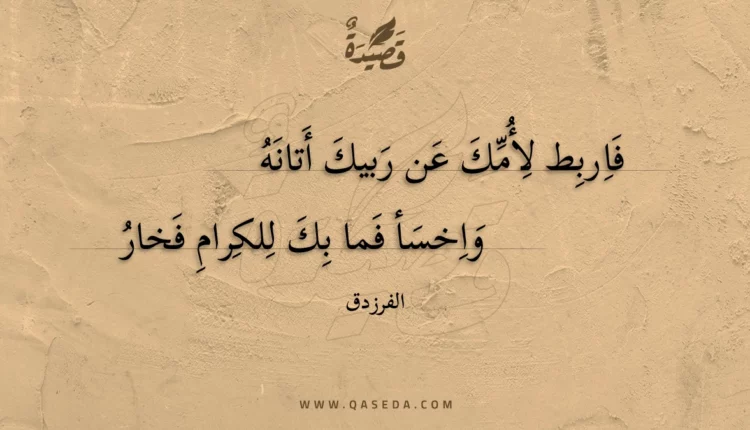 قَصِيدَةٌ
فَاِربِط لِأُمِّكَ عَن رَبيكَ أَتانَهُ
وَاِخسَأ فَما بِكَ لِلكِرامِ فَخارُ
الفرزدق
WWW.QASEDA.COM